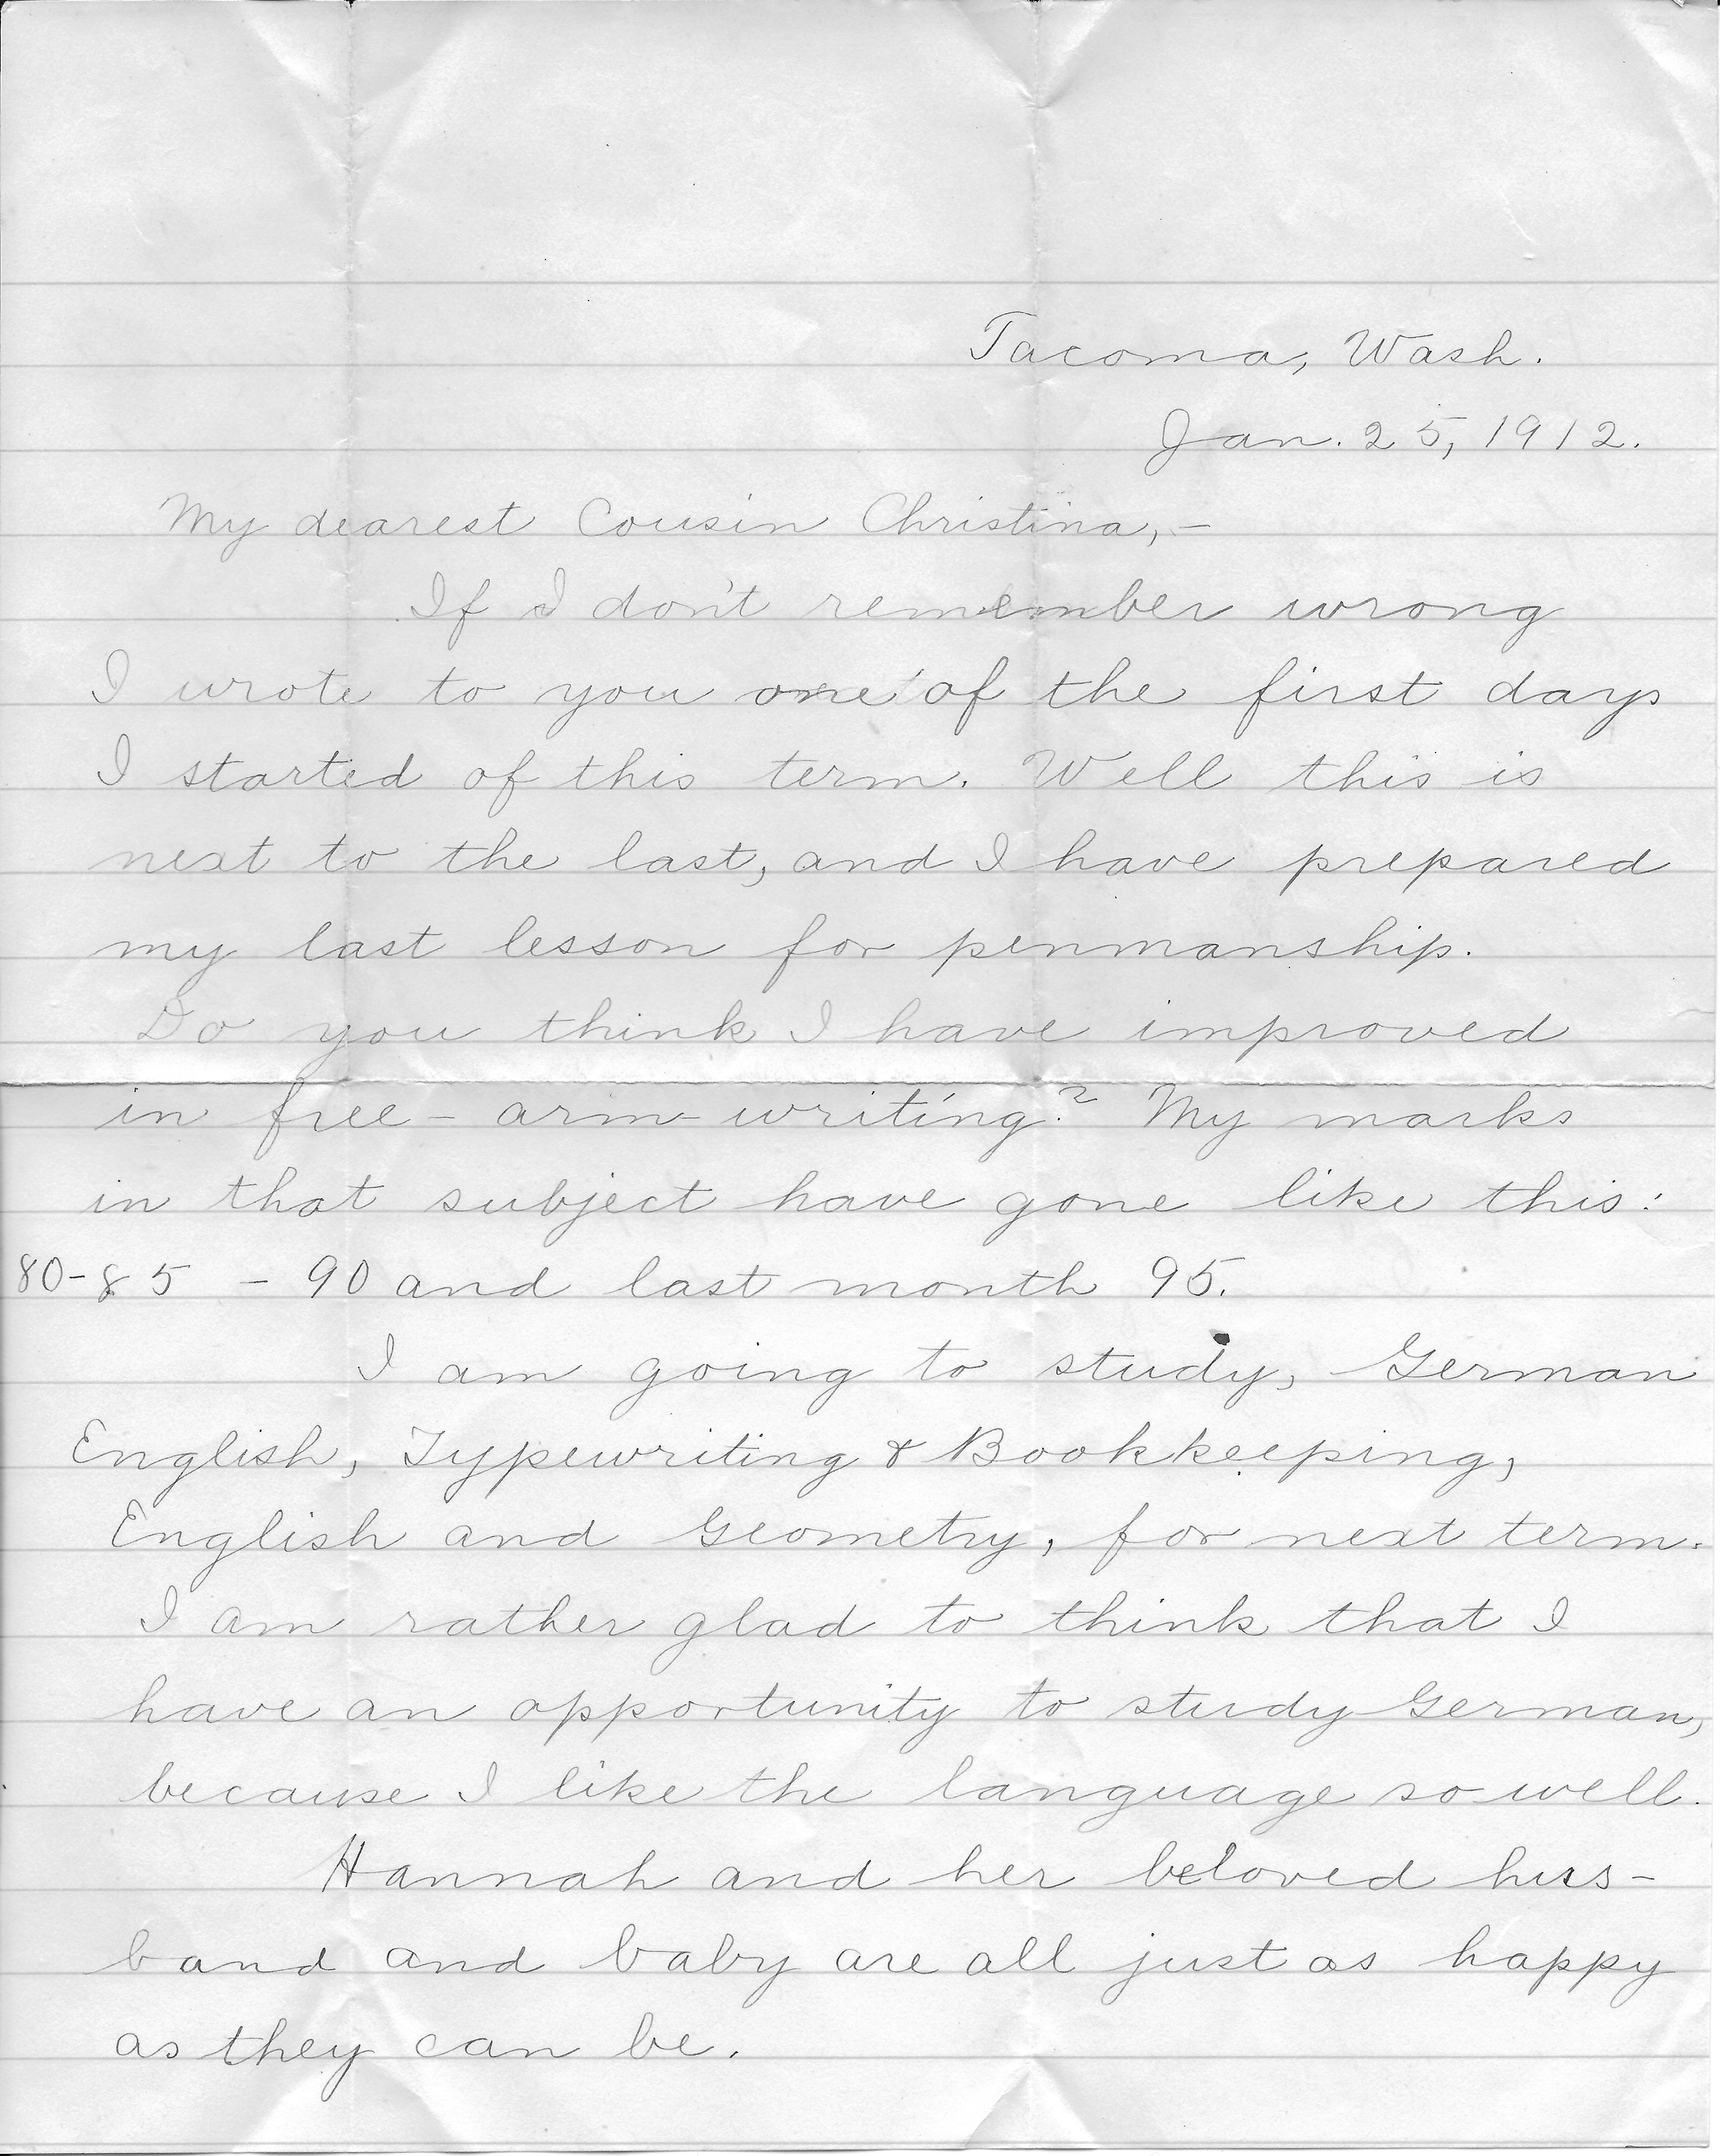 Tacoma, Wash.
Jan. 25, 1912.
My dearest Cousin Christina,-
If I don't remember wrong
I wrote to you one of the first days
I started of this term. Well this is
next to the last, and I have prepared
my last lesson for penmanship.
Do you think I have improved
in free-arm-writing? My marks
in that subject have gone like this:
80-85 - 90 and last month 95.
I am going to study, German
English, Typewriting & Bookkeeping,
English and Geometry, for next term.
I am rather glad to think that I
have an opportunity to study German,
because I like the language so well.
Hannah and her beloved hus-
band and baby are all just as happy
as they can be.